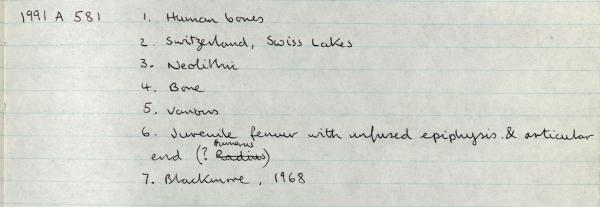 1991 A 581 1. Human bones
2. Switzerland, Swiss Lakes
3. Neolithic
4. Bone
5. Various
6. Juvenile femur with unfused epiphysis. & articular
Humerus
end (? Radius)
7. Blackmore, 1968